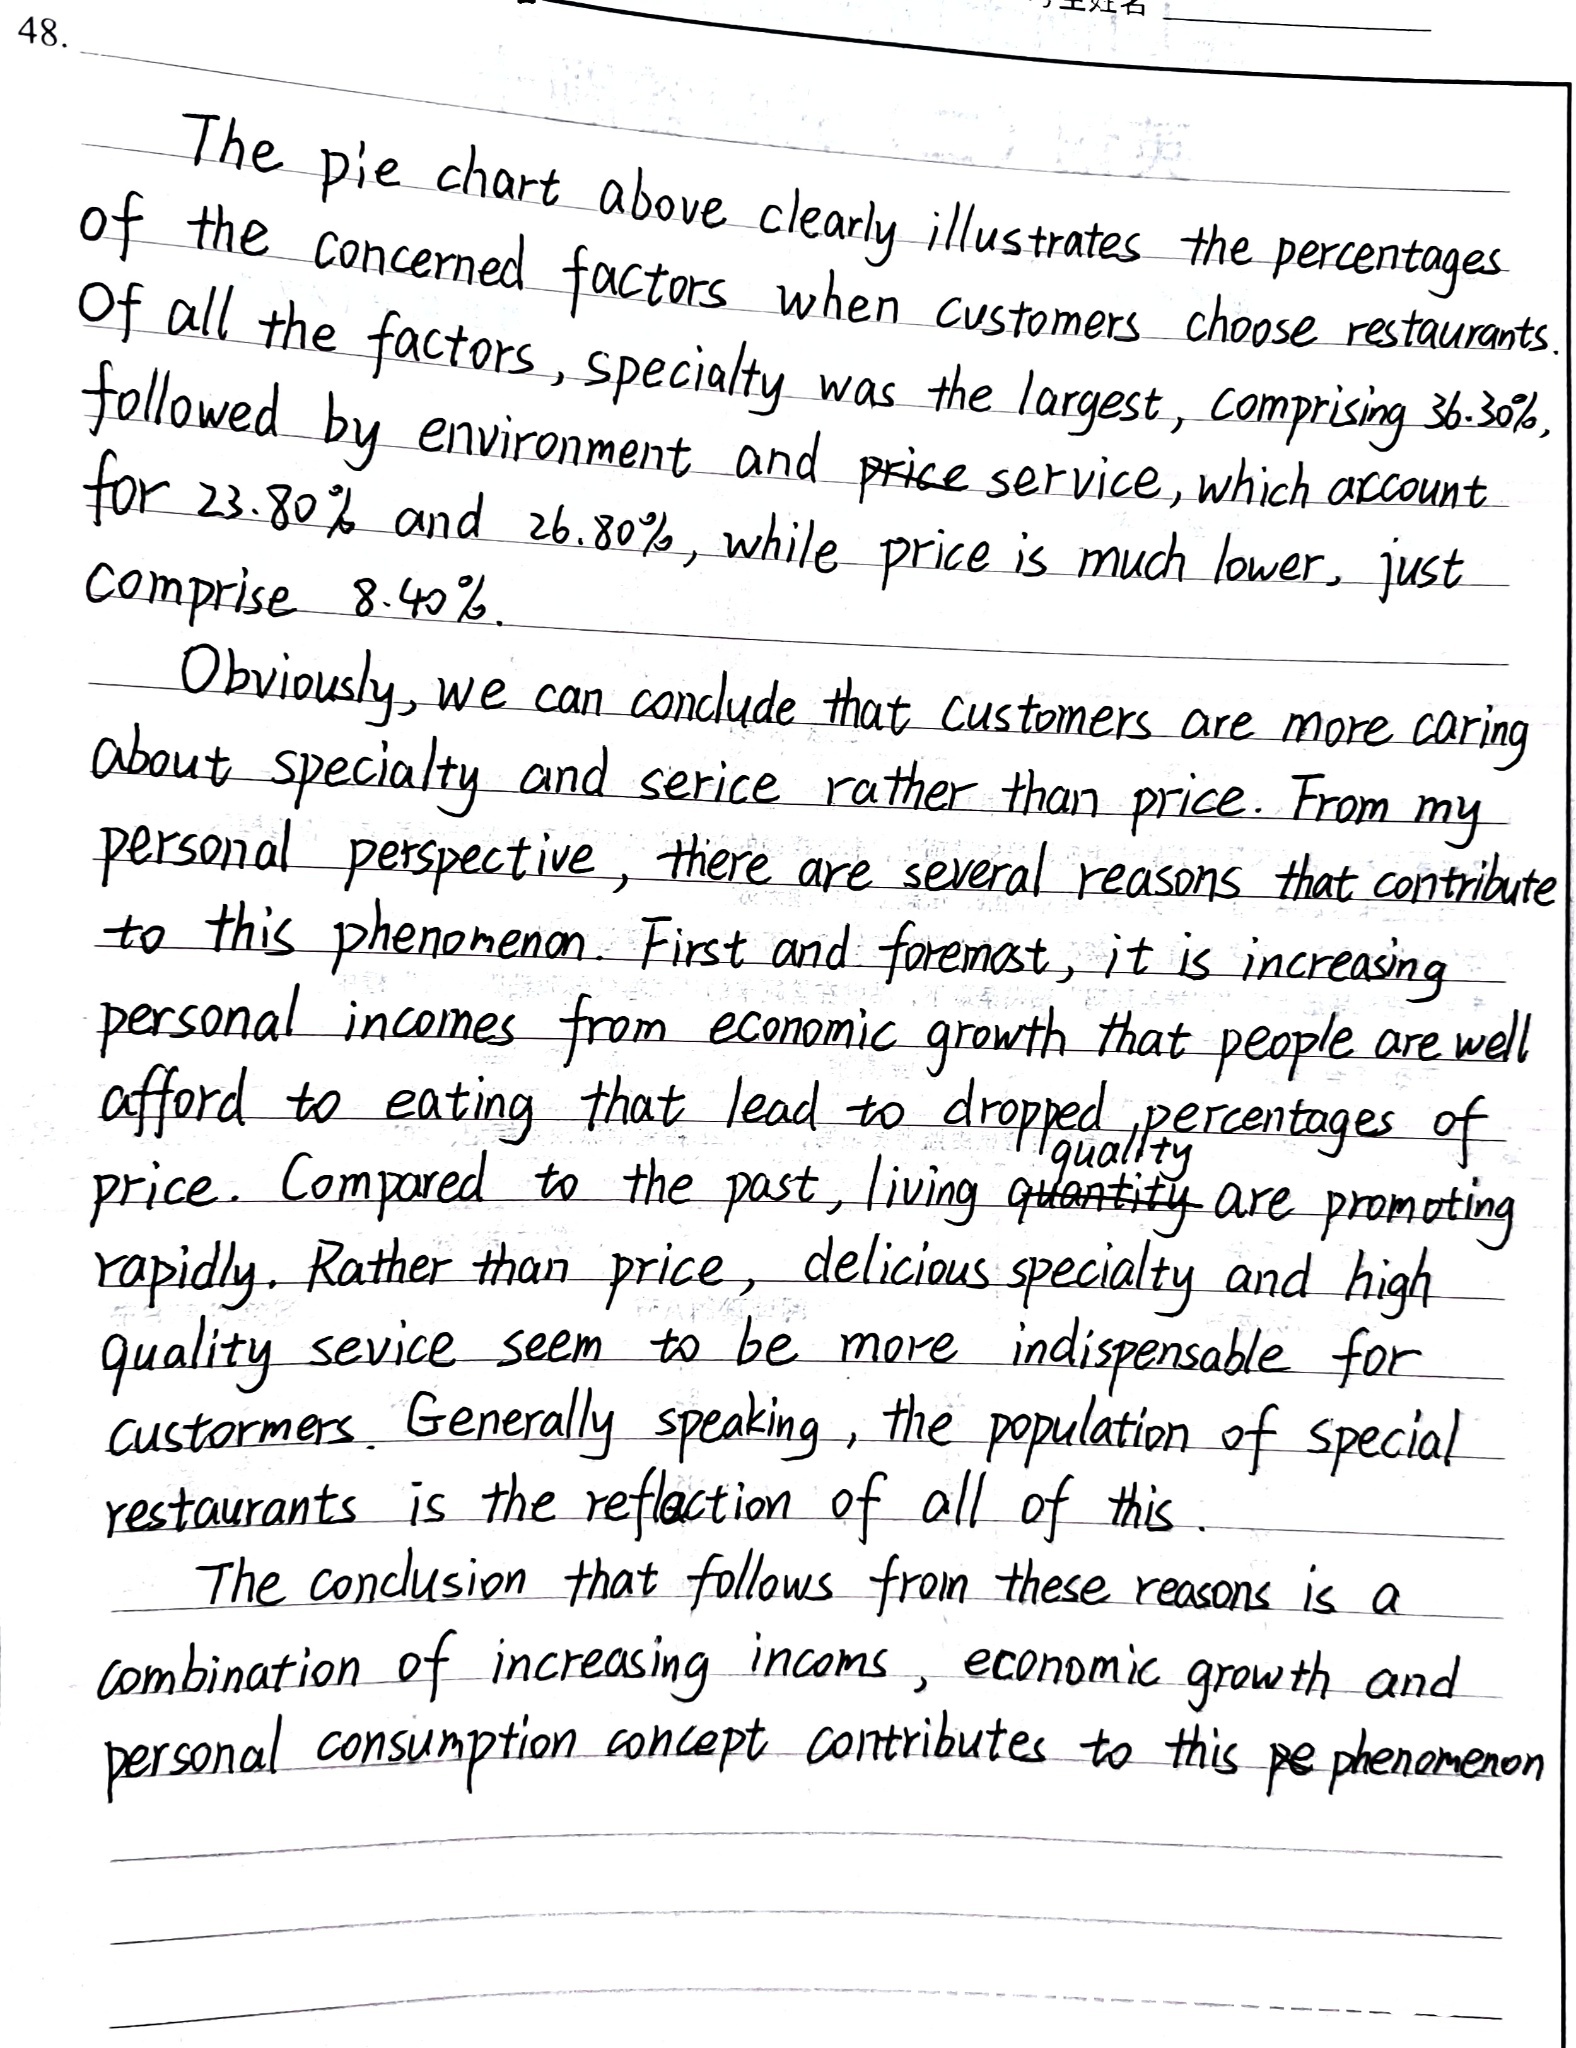 48.
The pie chart above clearly illustrates the percentages
of the concerned factors when customers choose restaurants.
Of all the factors, specialty was the largest, comprising 36.30%,
followed by environment and price service, which account
for 23.80% and 26.80%, while price is much lower, just
comprise 8.40%.
Obviously, we can conclude that customers are more caring
about specialty and serice rather than price. From my
personal perspective, there are several reasons that contribute
to this phenomenon. First and foremost, it is increasing
personal incomes from economic growth that people are well
afford to eating that lead to dropped percentages of
price. Compared to the past, living quantity quality are promoting
rapidly. Rather than price, delicious specialty and high
quality sevice seem to be more indispensable for
custormers. Generally speaking, the population of special
restaurants is the reflection of all of this.
The conclusion that follows from these reasons is a
combination of increasing incoms, economic growth and
personal consumption concept contributes to this pe phenomenon